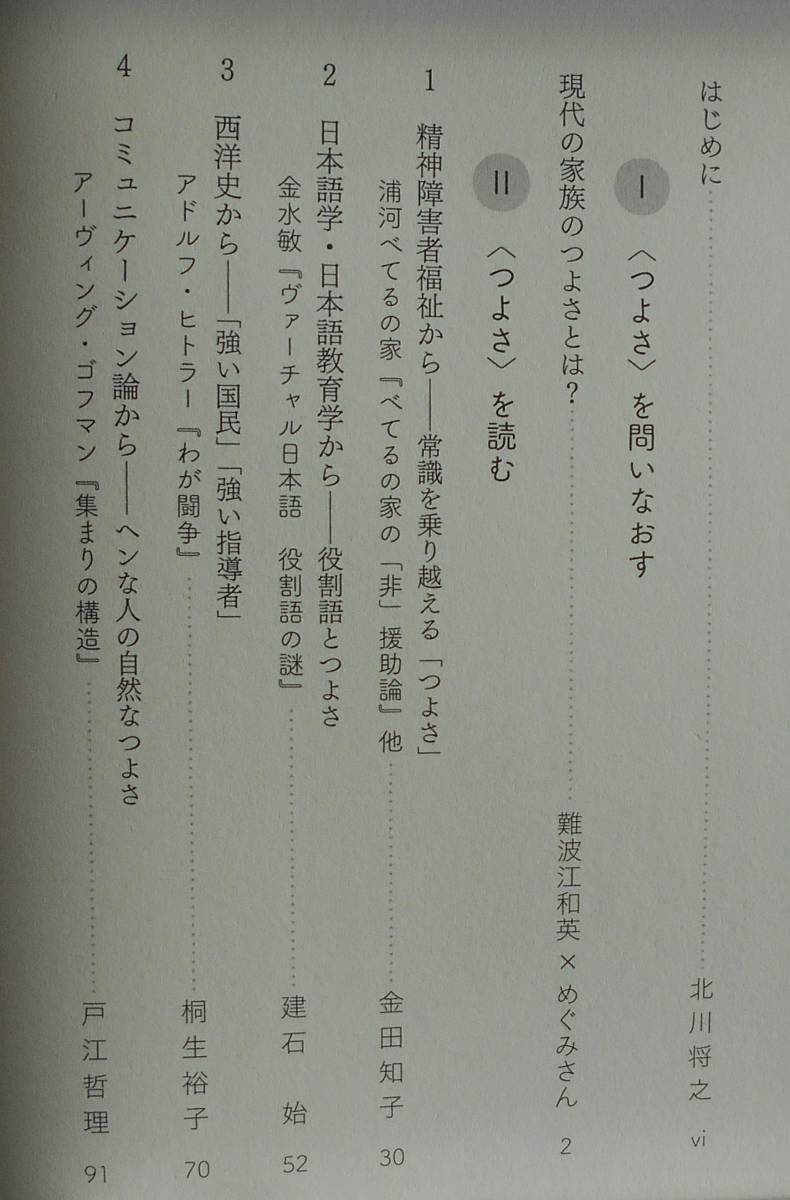 はじめに……………………北川将之 vi
Ⅰ 〈つよさ〉を問いなおす
現代の家族のつよさとは？……………………難波江和英×めぐみさん 2
Ⅱ 〈つよさ〉を読む
1 精神障害者福祉から——常識を乗り越える「つよさ」
浦河べてるの家『べてるの家の「非」援助論』他……………………金田知子 30
2 日本語学・日本語教育学から——役割語とつよさ
金水敏『ヴァーチャル日本語 役割語の謎』……………………建石 始 52
3 西洋史から——「強い国民」「強い指導者」
アドルフ・ヒトラー『わが闘争』……………………桐生裕子 70
4 コミュニケーション論から——ヘンな人の自然なつよさ
アーヴィング・ゴフマン『集まりの構造』……………………戸江哲理 91